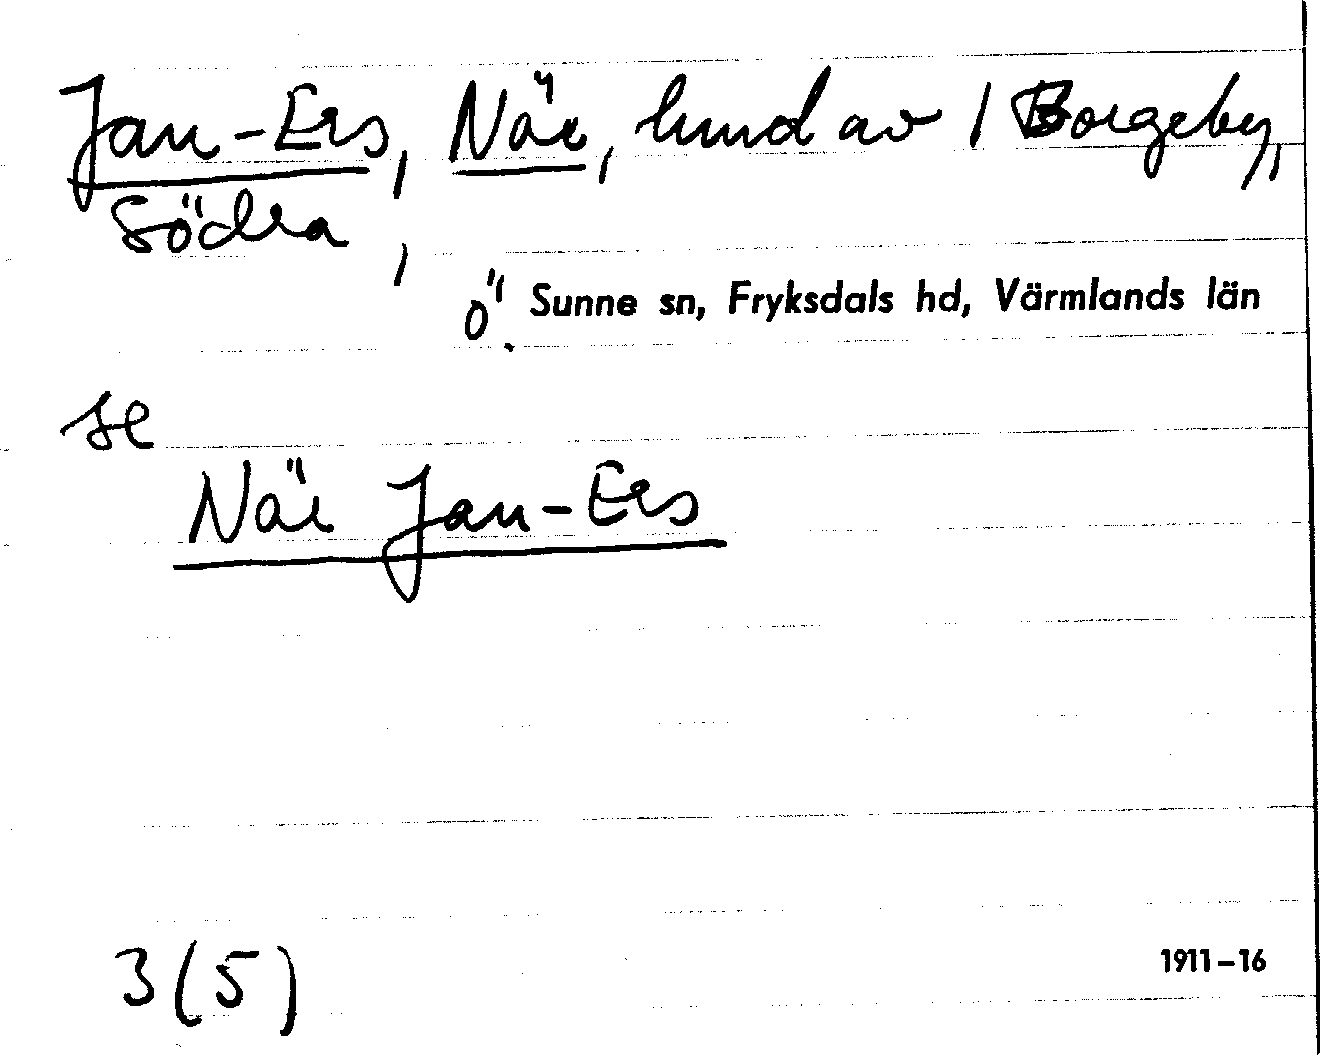 Jan-Ers, När, hmd av 1 Borgeby,
Södra,
Ö. Sunne sn, Fryksdals hd, Värmlands län
se
När Jan-Ers
3(5)
1911-16